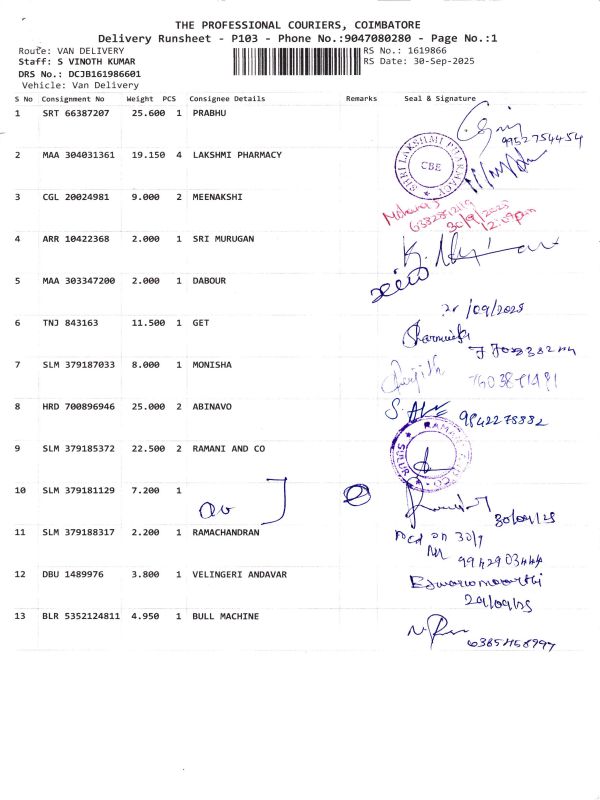 THE PROFESSIONAL COURIERS, COIMBATORE
Delivery Runsheet - P103 - Phone No.:9047080280 - Page No.:1
Route: VAN DELIVERY
RS No.: 1619866
Staff: S VINOTH KUMAR
RS Date: 30-Sep-2025
DRS No.: DCJB161986601
Vehicle: Van Delivery
S No Consignment No Weight PCS Consignee Details Remarks Seal & Signature
1 SRT 66387207 25.600 1 PRABHU
9952754454
2 MAA 304031361 19.150 4 LAKSHMI PHARMACY
SHRI LAKSHMI PHARMACY
CBE
3 CGL 20024981 9.000 2 MEENAKSHI
30/9/2025
12:09pm
4 ARR 10422368 2.000 1 SRI MURUGAN
5 MAA 303347200 2.000 1 DABOUR
/09/2025
6 TNJ 843163 11.500 1 GET
7 SLM 379187033 8.000 1 MONISHA
8 HRD 700896946 25.000 2 ABINAVO
9842278882
9 SLM 379185372 22.500 2 RAMANI AND CO
SULUR
10 SLM 379181129 7.200 1
30/09/25
11 SLM 379188317 2.200 1 RAMACHANDRAN
Recd on 30/9
9942903444
12 DBU 1489976 3.800 1 VELINGERI ANDAVAR
13 BLR 5352124811 4.950 1 BULL MACHINE